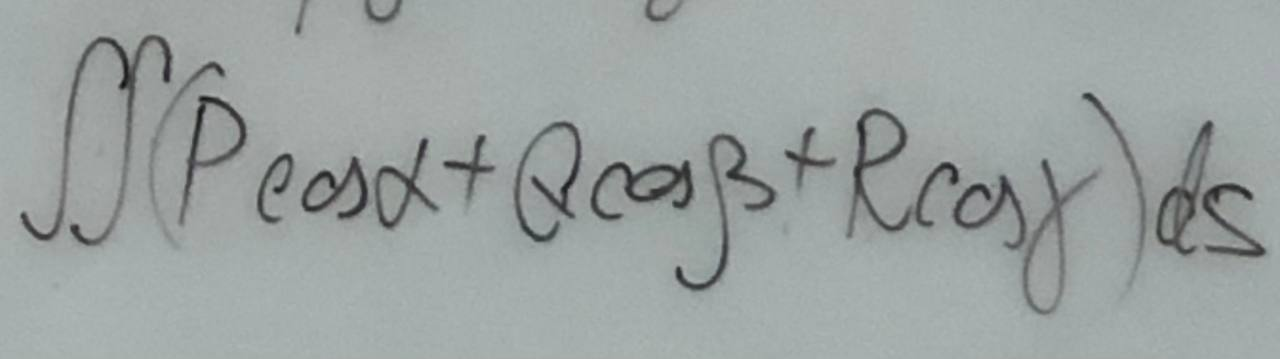 ∬(P cosα + Q cosβ + R cosγ) ds